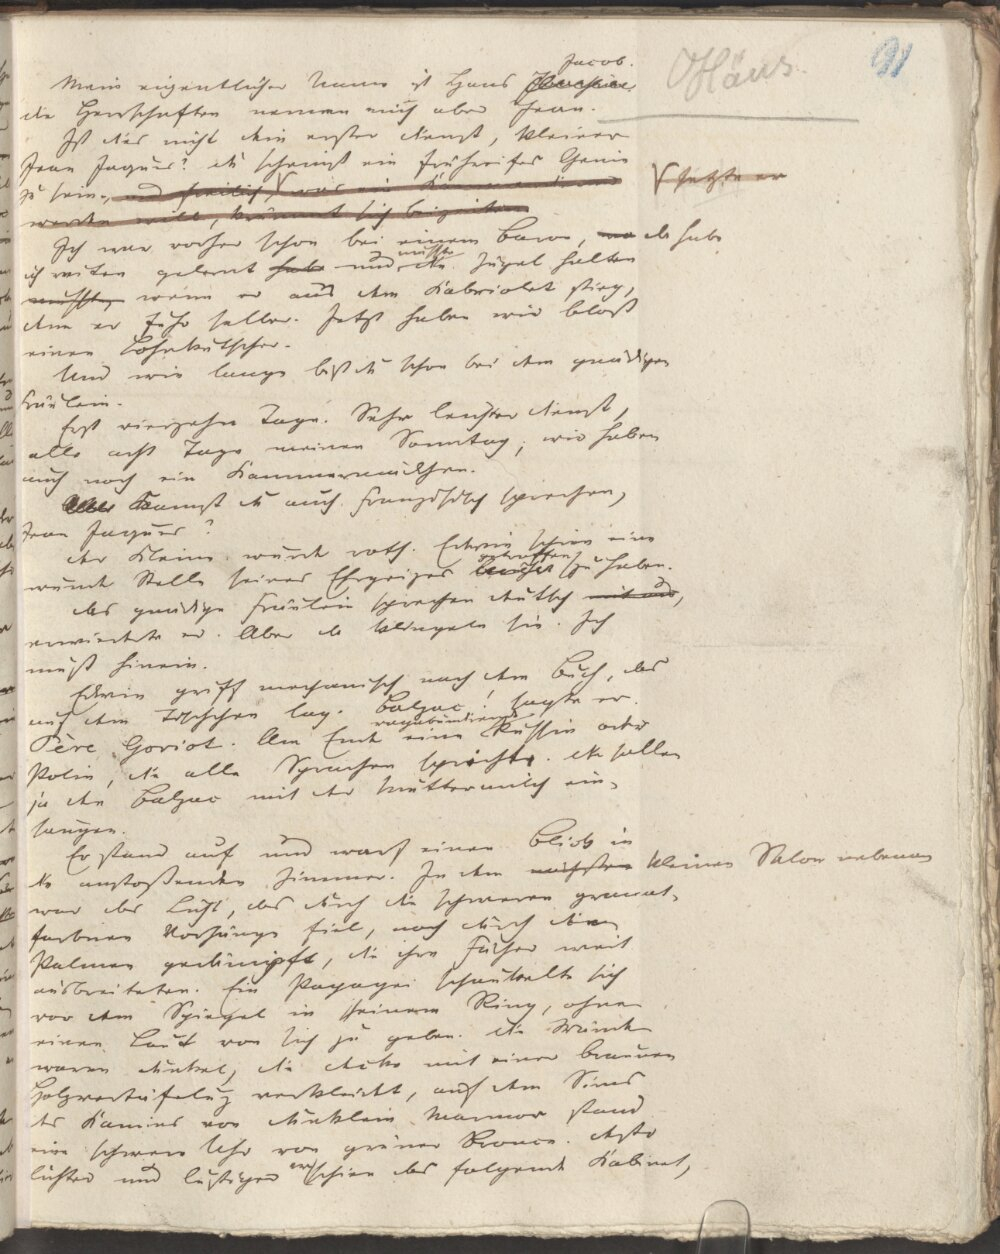 Häns
91
Mein eigentlicher Name ist Hans Jacob.
die Herrschaften nennen mich aber Jean.
Ist dies nicht dein erster Dienst, kleiner
Jean Jaques? du scheinst ein frühreifes Genie
zu sein, und freilich, was ein
werden will, krümmt sich beizeiten
setzte er
Ich war vorher schon bei einem Baron, da habe
ich reiten gelernt habe und mußte die Zügel halten
mußte, wenn er aus dem Kabriolet stieg,
denn er fuhr selber. Jetzt haben wir bloß
einen Lohnkutscher.
Und wie lange bist du schon bei dem gnädigen
Fräulein.
Erst vierzehn Tage. Sehr leichter Dienst,
alle acht Tage meinen Sonntag; wir haben
auch noch ein Kammermädchen.
Aber Kannst du auch französisch sprechen,
Jean Jaques?
der Kleine wurde roth. Edwin schien eine
wunde Stelle seines Ehrgeizes getroffen zu haben.
das gnädige Fräulein sprechen deutsch mit uns,
erwiederte er. Aber da klingeln sie. Ich
muß hinein.
Edwin griff mechanisch nach dem Buch, das
auf dem Tischchen lag. Balzac! sagte er.
Père Goriot. Am Ende eine vagabundirende Russin oder
Polin, die alle Sprachen spricht. die sollen
ja den Balzac mit der Muttermilch ein-
saugen.
Er stand auf und warf einen Blick in
die anstoßenden Zimmer. In dem nächsten kleinen Salon nebenan
war das Licht, das durch die schweren granat-
farbnen Vorhänge fiel, noch durch
Palmen gedämpft, die ihre Fächer weit
ausbreiteten. Ein Papagei schaukelte sich
vor dem Spiegel in seinem Ring, ohne
einen Laut von sich zu geben. die Wände
waren dunkel, die Decke mit einer braunen
Holzvertäfelung verkleidet, auf dem Sims
des Kamins von dunklem Marmor stand
eine schwere Uhr von grüner Bronce. desto
lichter und lustiger erschien das folgende Kabinet,